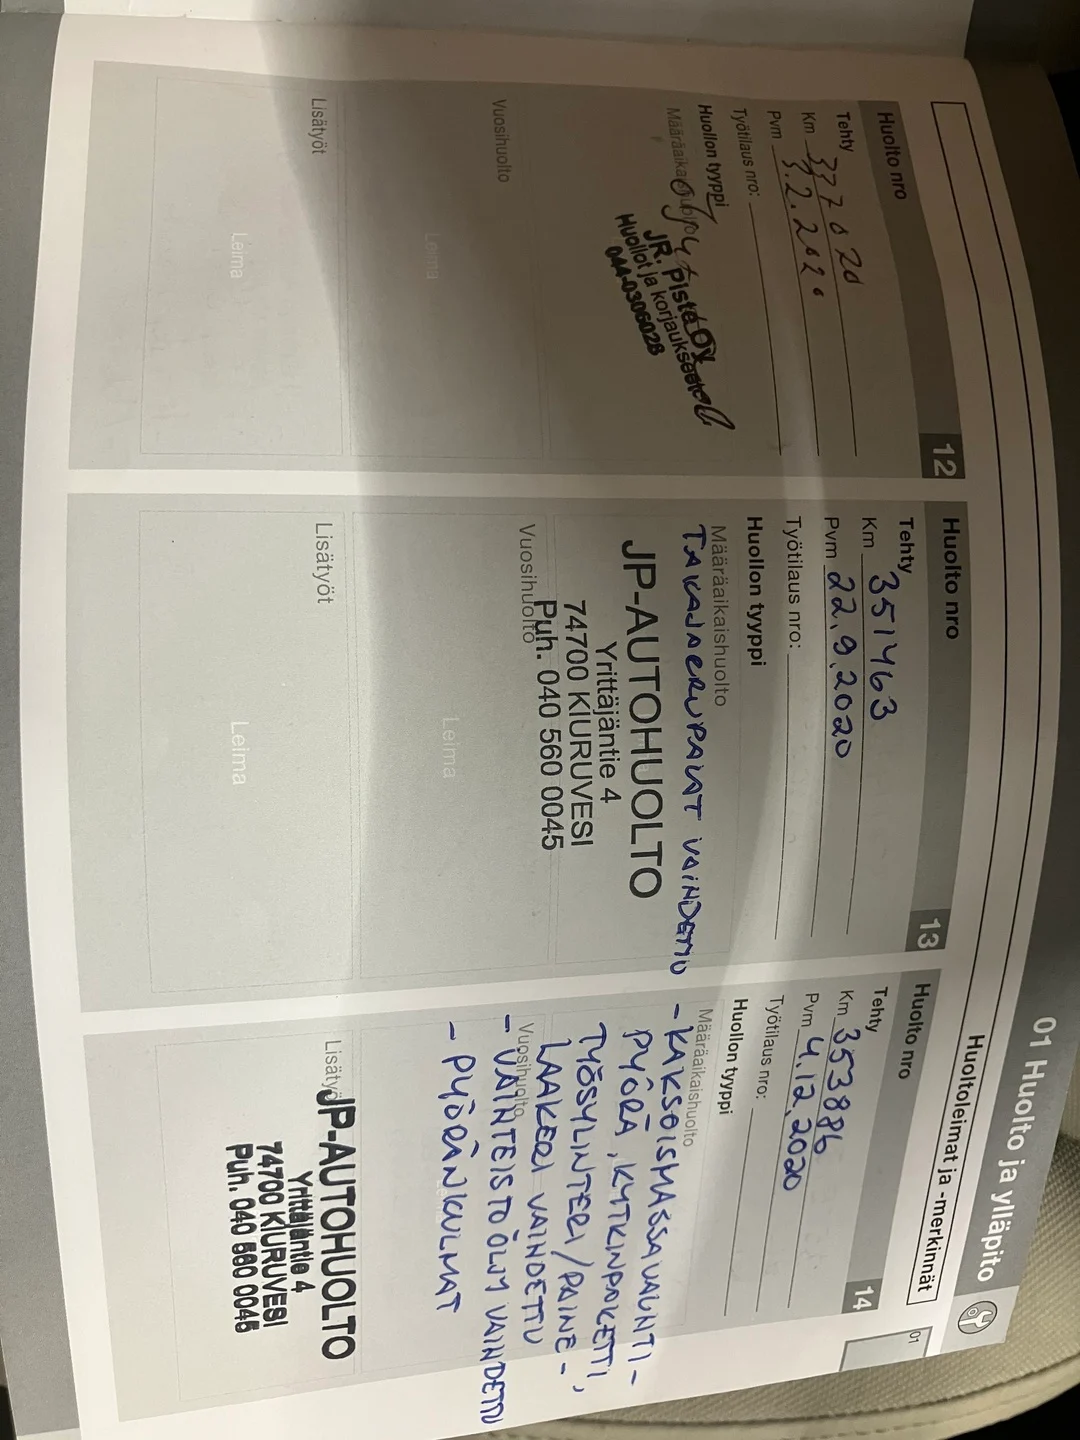 01 Huolto ja ylläpito
Huoltoleimat ja -merkinnät
01
Huolto nro 12
Tehty
Km 337020
Pvm 3.2.2020
Työtilaus nro:
Huollon tyyppi
JR. Piste OY
Huollot ja korjaukset
044-0306028
Vuosihuolto
Leima
Lisätyöt
Leima
Huolto nro 13
Tehty
Km 351463
Pvm 22.9.2020
Työtilaus nro:
Huollon tyyppi
Määräaikaishuolto
TAKAJARRUPALAT VAIHDETTU
JP-AUTOHUOLTO
Yrittäjäntie 4
74700 KIURUVESI
Puh. 040 560 0045
Vuosihuolto
Leima
Lisätyöt
Leima
Huolto nro 14
Tehty
Km 353886
Pvm 4.12.2020
Työtilaus nro:
Huollon tyyppi
Määräaikaishuolto
- KAKSOISMASSAVAUHTI-
PYÖRÄ, KYTKINPAKETTI,
TYÖSYLINTERI/PAINE-
LAAKERI VAIHDETTU
Vuosihuolto
- VAIHTEISTOÖLJY VAIHDETTU
- PYÖRÄNKULMAT
Lisätyöt
JP-AUTOHUOLTO
Yrittäjäntie 4
74700 KIURUVESI
Puh. 040 560 0045